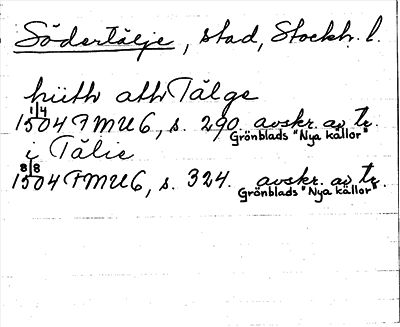 Södertälje, stad, Stockh. l.
hüth ath Tälge
1/4
1504 FMU6, s. 290 avskr. av tr.
Grönblads "Nya källor"
i Tälie
8/8
1504 FMU6, s. 324. avskr. av tr.
Grönblads "Nya källor"